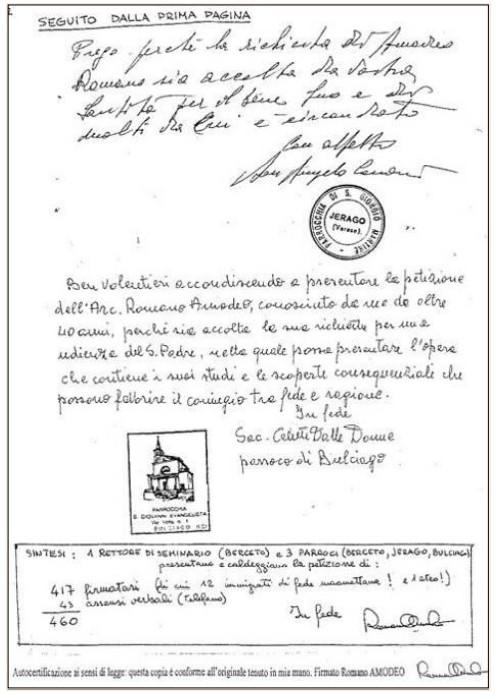 SEGUITO DALLA PRIMA PAGINA
Prego perché la richiesta di Amodeo
Romano sia accolta da Vostra
Santità per il bene suo e di
molti da cui è circondato
Con affetto
Don Angelo
PARROCCHIA DI S. GIORGIO MARTIRE
JERAGO
(Varese)
Ben volentieri accondiscendo a presentare la petizione
dell'Arc. Romano Amodeo, conosciuto da me da oltre
40 anni, perché sia accolta la sua richiesta per una
udienza del S. Padre, nella quale possa presentare l'opera
che contiene i suoi studi e le scoperte consequenziali che
possono favorire il connubio tra fede e ragione.
In fede
Sac. Celeste Dalle Donne
parroco di Bulciago
PARROCCHIA
S. GIOVANNI EVANGELISTA
SINTESI : 1 RETTORE DI SEMINARIO (BERCETO) e 3 PARROCI (BERCETO, JERAGO, BULCIAGO)
presentano e caldeggiano la petizione di :
417 firmatari (di cui 12 immigrati di fede maomettana ! e 1 ateo!)
43 assensi verbali (telefono)
460
In fede
Autocertificazione ai sensi di legge: questa copia è conforme all'originale tenuto in mia mano. Firmato Romano AMODEO